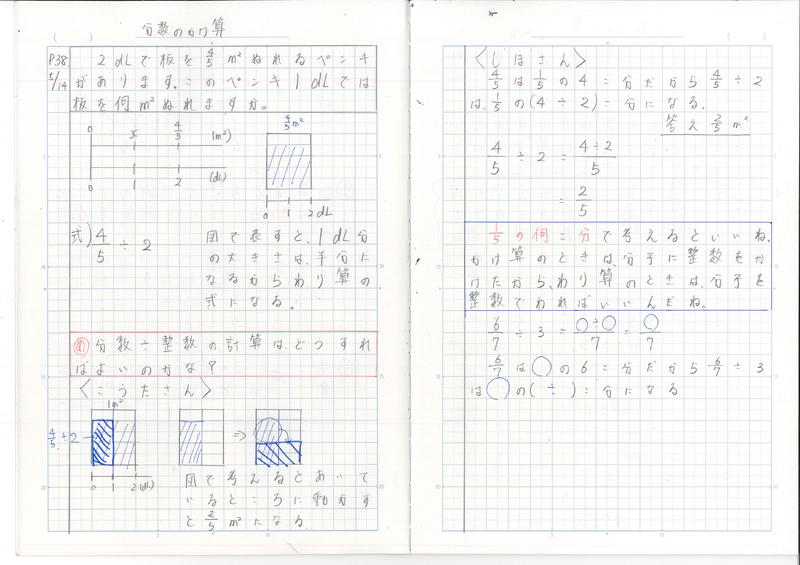 分数のかけ算
P38
5/14
2dLで板を4/5m²ぬれるペンキ
があります。このペンキ1dLでは
板を何m²ぬれますか。
0 x 4/5 (m²)
0 1 2 (dL)
4/5m²
0 1 2dL
式) 4/5 ÷ 2
図で表すと、1dL分
の大きさは、半分に
なるからわり算の
式になる。
め 分数÷整数の計算は、どうすれ
ばよいのかな?
〈こうたさん〉
1m²
4/5÷2
⇒
0 1 2(dL)
図で考えるとあいて
いるところに動かす
と2/5m²になる
〈しほさん〉
4/5は1/5の4こ分だから4/5÷2
は、1/5の(4÷2)こ分になる。
答え 2/5m²
4/5 ÷ 2 = 4÷2/5
= 2/5
1/5の何こ分で考えるといいね。
かけ算のときは、分子に整数をか
けたから、わり算のときは、分子を
整数でわればいいんだね。
6/7 ÷ 3 = ○÷○/7 = ○/7
6/7は○の6こ分だから6/7÷3
は○の(÷)こ分になる